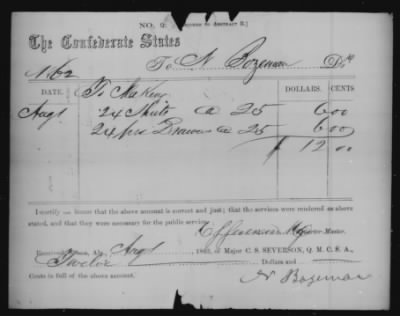 NO. 2. [VOUCHER TO ABSTRACT B.]
The Confederate States
To N Bozeman Dr.
1862
DATE. DOLLARS. CENTS
To Making
Augt 24 Shirts @ 25 6 00
24 prs Drawers @ 25 6 00
$ 12 00
I certify on honor that the above amount is correct and just; that the services were rendered as above
stated, and that they were necessary for the public service.
Quarter-Master.
Ala., Augt 1862, of Major C. S. SEVERSON, Q. M. C. S. A.,
Twelve Dollars and
Cents in full of the above amount.
N Bozeman